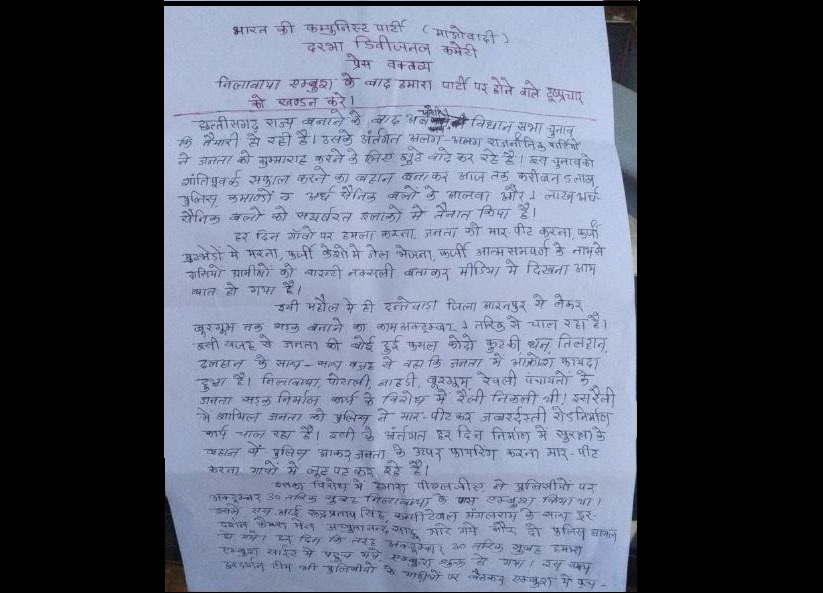 भारत की कम्युनिस्ट पार्टी (माओवादी)
दरभा डिवीजनल कमेटी
प्रेस वक्तव्य
निलावाया एम्बुश के बाद हमारा पार्टी पर होने वाले दूष्प्रचार
को खण्डन करे!
छत्तीसगढ़ राज्य बनाने के बाद अब विधान सभा चुनाव
कि तैयारी हो रही है। उसके अंतर्गत अलग-अलग राजनीतिक पार्टियों
ने जनता को गुम्माराह करने के लिए झुटे वादे कर रहे है। इस चुनाव को
शांतिपुर्वक सफाल करने का बहाना बनाकर आज तक करीबन 5 लाख
पुलिस, कमाण्डों व अर्ध सैनिक बलों के आलवा और 1 लाख अर्ध-
सैनिक बलों को संघर्षरत इलाकों में तैनात किया है।
हर दिन गाँवों पर हमला करना, जनता को मार पीट करना, फर्जी
मुठभेड़ों में मरना, फर्जी केशो मे जेल भेजना, फर्जी आत्मसमर्पण के नाम से
ग्रामीणों को वारन्टी नक्सली बताकर मीडिया मे दिखना आम
बात हो गया है।
इसी महौल मे ही दन्तेवाड़ा जिला आरनपुर से लेकर
बुरगुम तक सड़क बनाने का काम अक्टूम्बर 1 तारिक से चाल रहा है।
इसी वजह से जनता की बोई हुई फसल कोदो कुटकी, धान, तिलहान,
दलहान के साथ-साथ वजह से वहा कि जनता में आक्रोश फायदा
हुआ है। निलावाया, पोटाली, नाहडी, बुरगुम, रेवली पंचायतों के
जनता सड़क निर्माण कार्य के विरोध में रैली निकली थी! इस रैली
मे शामिल जनता को पुलिस ने मार-पीट कर जबरर्दस्ती रोड निर्माण
कार्य चाल रहा है। इसी के अंर्तगत हर दिन निर्माण में सुरक्षा के
बहान में पुलिस आकर जनता के ऊपर फायरिंग करना मार-पीट
करना गावों मे लूट पट कर रहे है।
इसका विरोध में हमारा पीएलजीए ने पुलिसीयों पर
अक्टूम्बर 30 तारिक सुबह निलावाया के पास एम्बुश किया था।
इसमे एस.आई. रूद्रप्रताप सिंह, कानिस्टेबल मंगलराम के साथ दूर-
दर्शन कैमरा मेन अच्युतानन्द साहू मारे गये और दो पुलिस घायल
हो गये। हर दिन कि तरह अक्टूम्बर 30 तारिक सुबह हमारा
एम्बुश साईट में पहुच गये एम्बुश शुरू हो गया। इस वक्त
दूरदर्शन टीम भी पुलिसीयों के गाड़ीयों पर बैठकर एम्बुश में फंस-